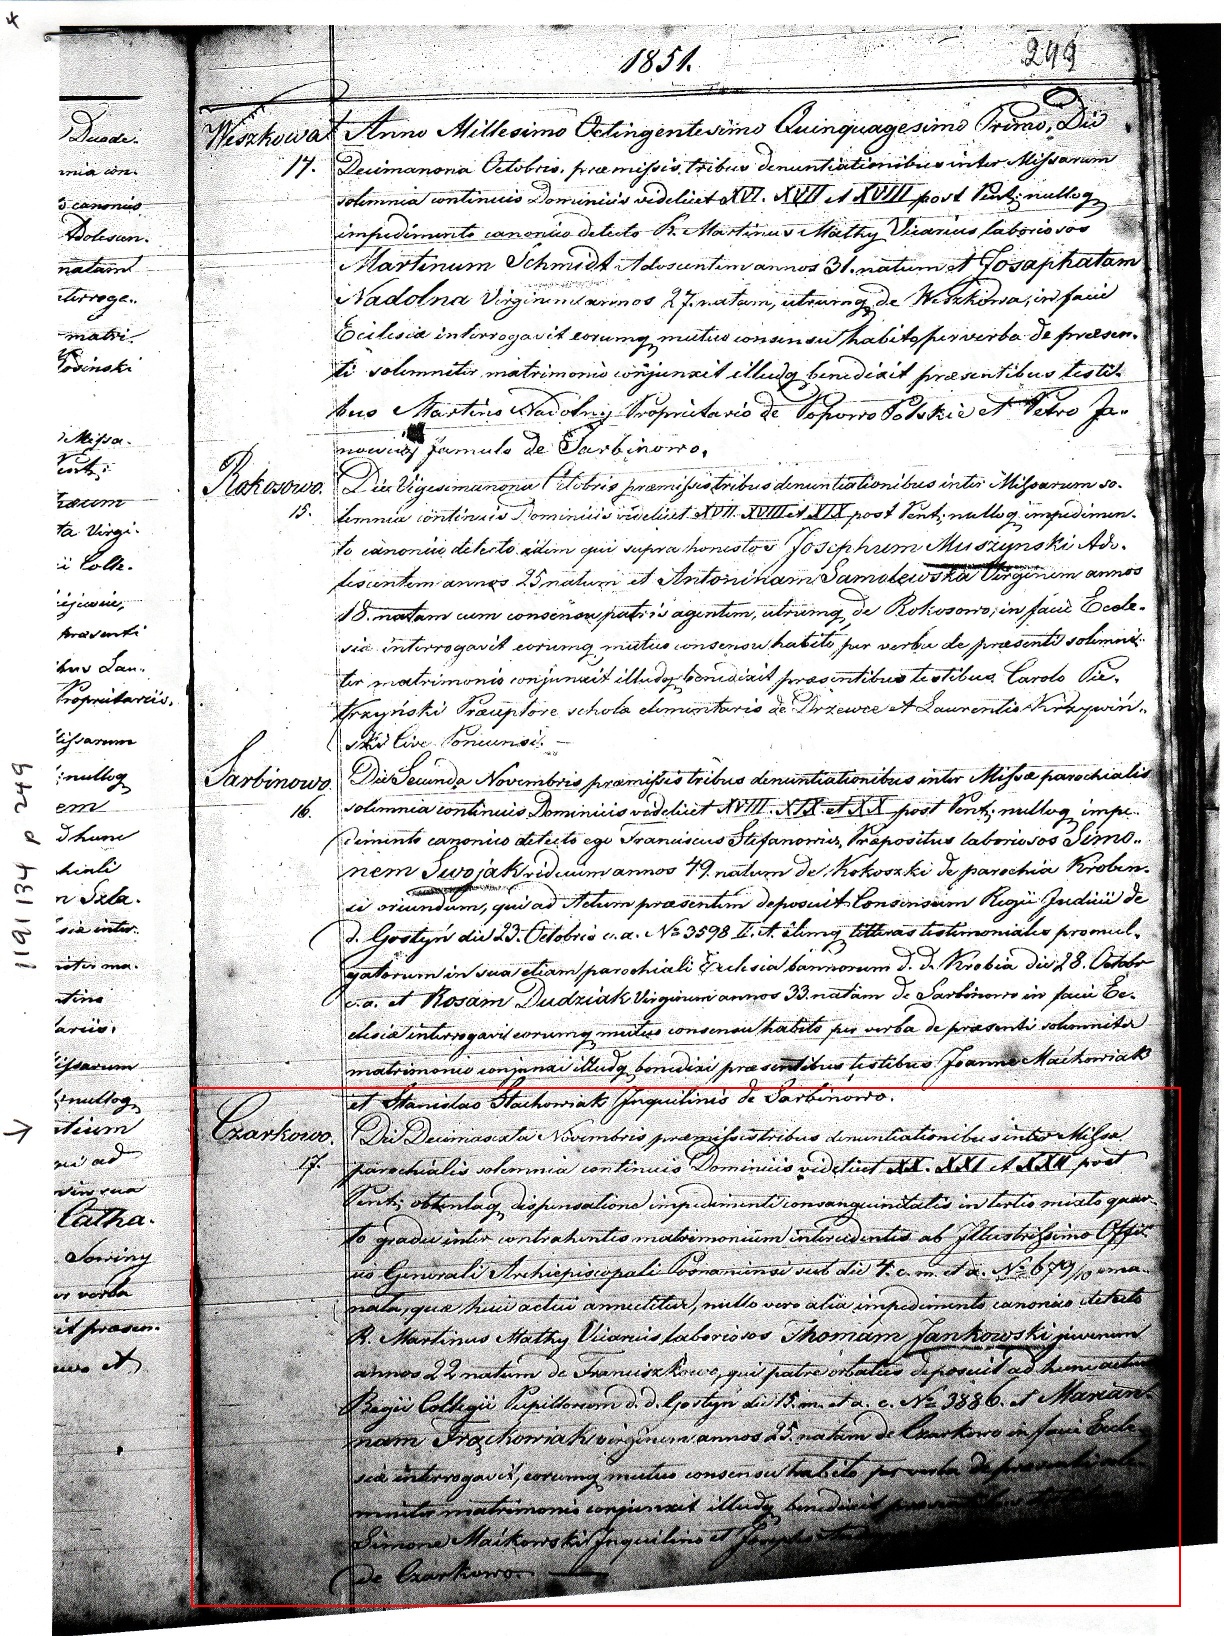 1851.
249
Weszkowa
14.
Anno Millesimo Octingentesimo Quinquagesimo Primo, Die
Decimanona Octobris, præmissis tribus denuntiationibus inter Missarum
solemnia continuis Dominicis videlicet XVI. XVII et XVIII post Pent: nulloq
impedimento canonico detecto R. Martinus Mathy Vicarius laboriosos
Martinum Schmidt Adoscentem annos 31. natum et Josaphatam
Nadolna Virginem annos 27. natam, utrumq de Weszkowa, in facie
Ecclesiæ interrogavit eorumq mutuo consensu habito per verba de præsen-
ti solemniter matrimonio conjunxit illudq benedixit præsentibus testi-
bus Martino Nadolny Proprietario de Popowo Polskie et Petro Ja-
famulo de Sarbinowo.
Rokosowo.
15.
Die Vigesimanona Octobris præmissis tribus denuntiationibus inter Missarum so-
lemnia continuis Dominicis videlicet XVII XVIII et XIX post Pent: nulloq impedimen-
to canonico detecto idem qui supra honestos Josephum Muszynski Ado-
lescentem annos 25 natum et Antoninam Samolewska Virginem annos
18. natam cum consensu patris agentem, utrumq de Rokosowo, in facie Eccle-
siæ interrogavit eorumq mutuo consensu habito per verba de præsenti solemni-
ter matrimonio conjunxit illudq benedixit præsentibus testibus Carolo Pie-
trzyński Præceptore scholæ elimentaris de Drzewce et Laurentio Krzywiń-
ski Cive Poncensi. —
Sarbinowo.
16.
Die Secunda Novembris præmissis tribus denuntiationibus inter Missæ parochialis
solemnia continuis Dominicis videlicet XVIII. XIX. et XX post Pent: nulloq impe-
dimento canonico detecto ego Franciscus Stefanowicz Præpositus laboriosos Simo-
nem Swojak viduum annos 49. natum de Kokoszki de parochia Kroben-
si oriundum, qui ad Actum præsentem deposuit Consensum Regii Judicii de
d. Gostyń die 23. Octobris c. a. No 3598 II. et litteras testimoniales promul-
gatorum in sua etiam parochiali Ecclesia bannorum d. d. Krobia die 28. Octobr
c. a. et Rosam Dudziak Virginem annos 33. natam de Sarbinowo in facie Ec-
clesiæ interrogavi eorumq mutuo consensu habito per verba de præsenti solemniter
matrimonio conjunxi illudq benedixi præsentibus testibus Joanne Maćkowiak
et Stanislao Stachowiak Inquilinis de Sarbinowo.
Czarkowo.
17.
Die Decimasexta Novembris præmissis tribus denuntiationibus inter Missa
parochialis solemnia continuis Dominicis videlicet XX. XXI et XXII post
Pent: obtentaq dispensatione impedimenti consanguinitatis in tertio mixto quar-
to gradu inter contrahentes matrimonium intercedentis ab Illustrissimo Offi-
cio Generali Archiepiscopali Posnaniensi sub die 4. c. m. et a. No 679/10 ema-
nata, quæ huic actui annectitur, nullo vero alio impedimento canonico detecto
R. Martinus Mathy Vicarius laboriosos Thomam Jankowski juvenem
annos 22 natum de Franciszkowo, qui patre orbatus deposuit ad hunc actum
Regii Collegii Pupillorum d. d. Gostyń die 15. m. et a. c. No 3886. et Marian-
nam Frąckowiak virginem annos 25. natam de Czarkowo in facie Eccle-
siæ interrogavit, eorumq mutuo consensu habito per verba de præsenti sole-
mniter matrimonio conjunxit illudq benedixit
Simone Maikowski Inquilino et Josepho
de Czarkowo. —
1191134 p 249
Duode-
mia con-
canonico
Adolescen-
natam
interroge-
matri-
Missa-
Virgi-
præsenti
Lau-
Proprietariis.
issarum
nulloq
em
hunc
Szla-
siæ inter-
issarum
nulloq
ad
in sua
Catha-
Sowiny
verba
it præsen-
et